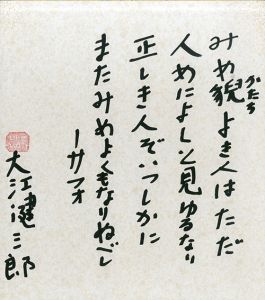 みめ貌よき人はただ
かたち
人めによしと見ゆるなり
正しき人ぞいつしかに
またみめよくもなりぬべし
ーサフォ
大江健三郎